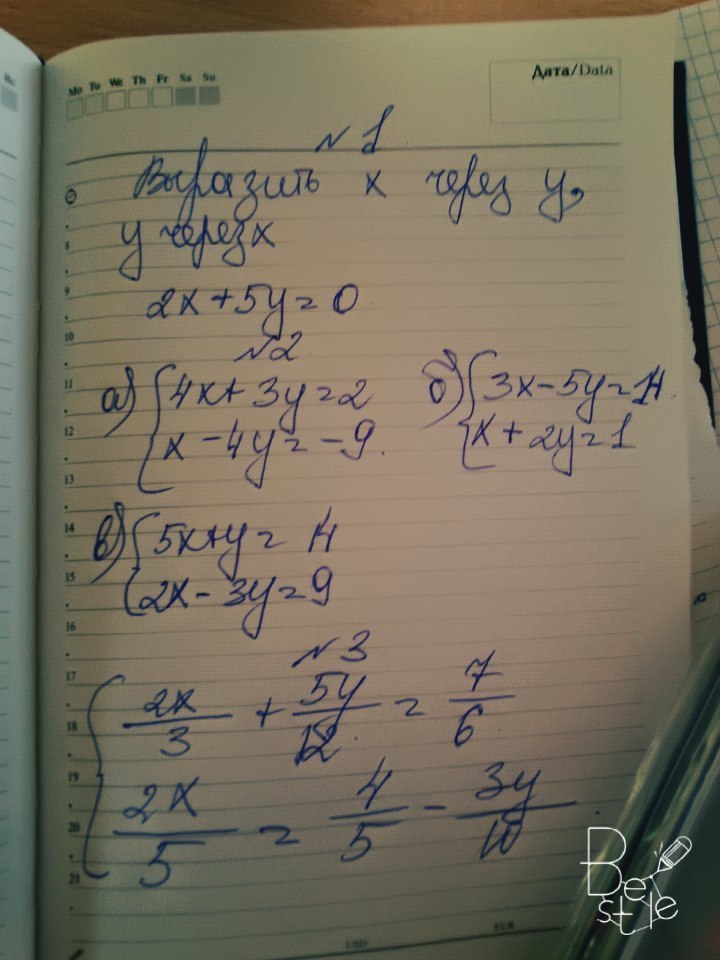 Mo Tu We Th Fr Sa Su
Дата/Data
№1
Выразить x через y,
y через x
2x+5y=0
№2
а) {4x+3y=2
{x-4y=-9.
б) {3x-5y=14
{x+2y=1
в) {5x+y=14
{2x-3y=9
№3
{2x/3 + 5y/12 = 7/6
{2x/5 = 4/5 - 3y/10
8
9
10
11
12
13
14
15
16
17
18
19
20
21
USD
EUR
Be style